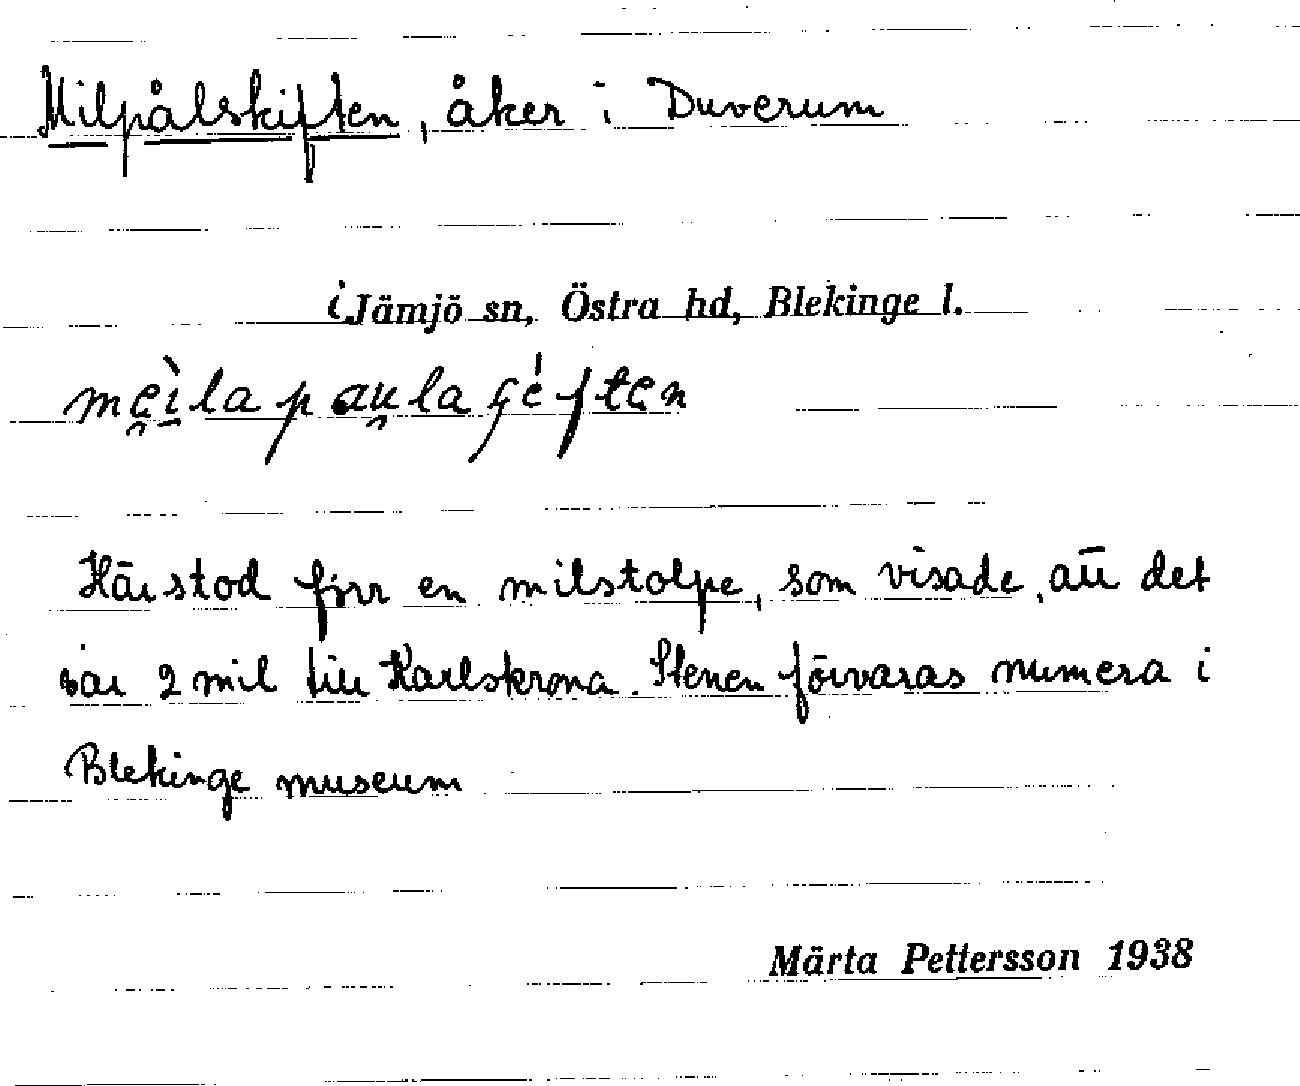 Milpålskiften, åker i Duverum
i Jämjö sn, Östra hd, Blekinge l.
Här stod förr en milstolpe, som visade, att det
var 2 mil till Karlskrona. Stenen förvaras numera i
Blekinge museum
Märta Pettersson 1938